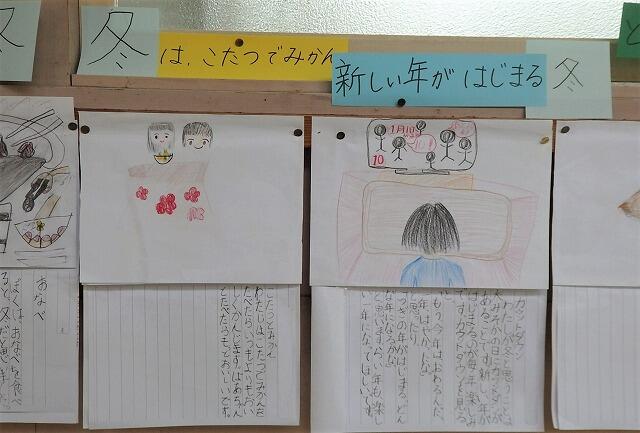 冬
冬
は、こたつでみかん
新しい年が はじまる
冬
と
1月1日
10
おなべ
ぼくは、おなべを食べ
ると、冬だと思いま
こたつとみかん
わたしは、こたつでみかんを
たべたら、いつもよりもっ
かんじます。ばあちゃん
とたべたらもっとおいしいです。
わたしが冬と思うことは
大みそかの日にカウントダウンが
あることです。新しい年が
はじまるのが毎年楽しみ
です。カウントダウンを見
「もう今年はおわるんだ。
一年ははやいな。」
と思ったり
「つぎの年がはじまる。どん
な年になるかな。」
と思います。らい年も楽し
い年になってほしいです。